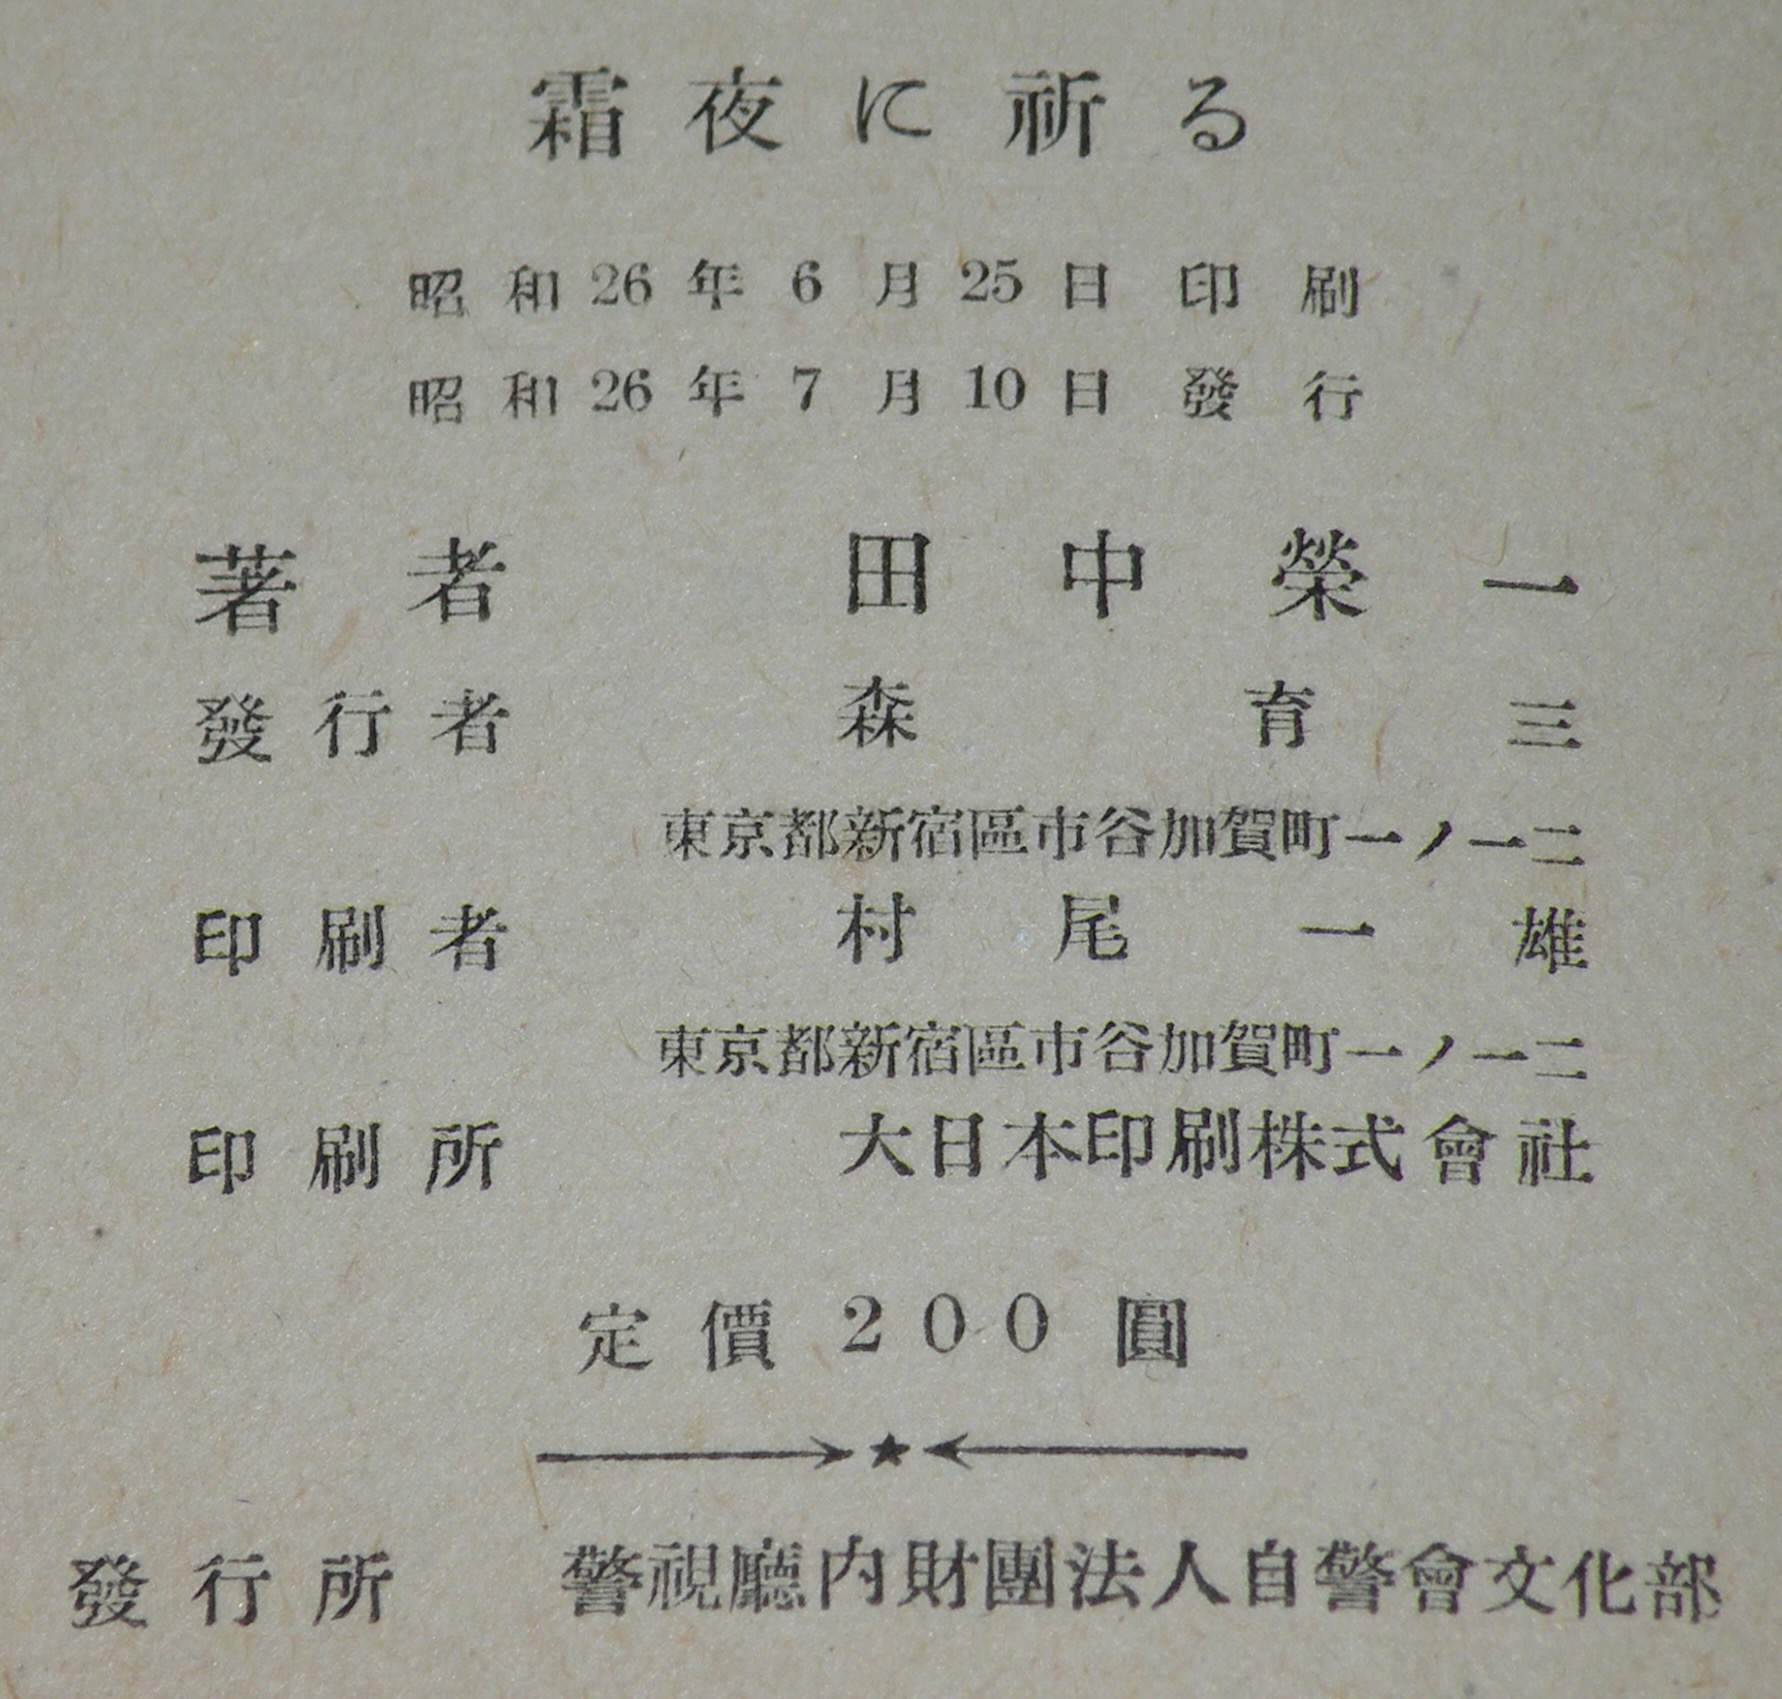 霜夜に祈る
昭和26年6月25日印刷
昭和26年7月10日發行
著者 田中榮一
發行者 森育三
東京都新宿區市谷加賀町一ノ一二
印刷者 村尾一雄
東京都新宿區市谷加賀町一ノ一二
印刷所 大日本印刷株式會社
定價200圓
發行所 警視廳内財團法人自警會文化部